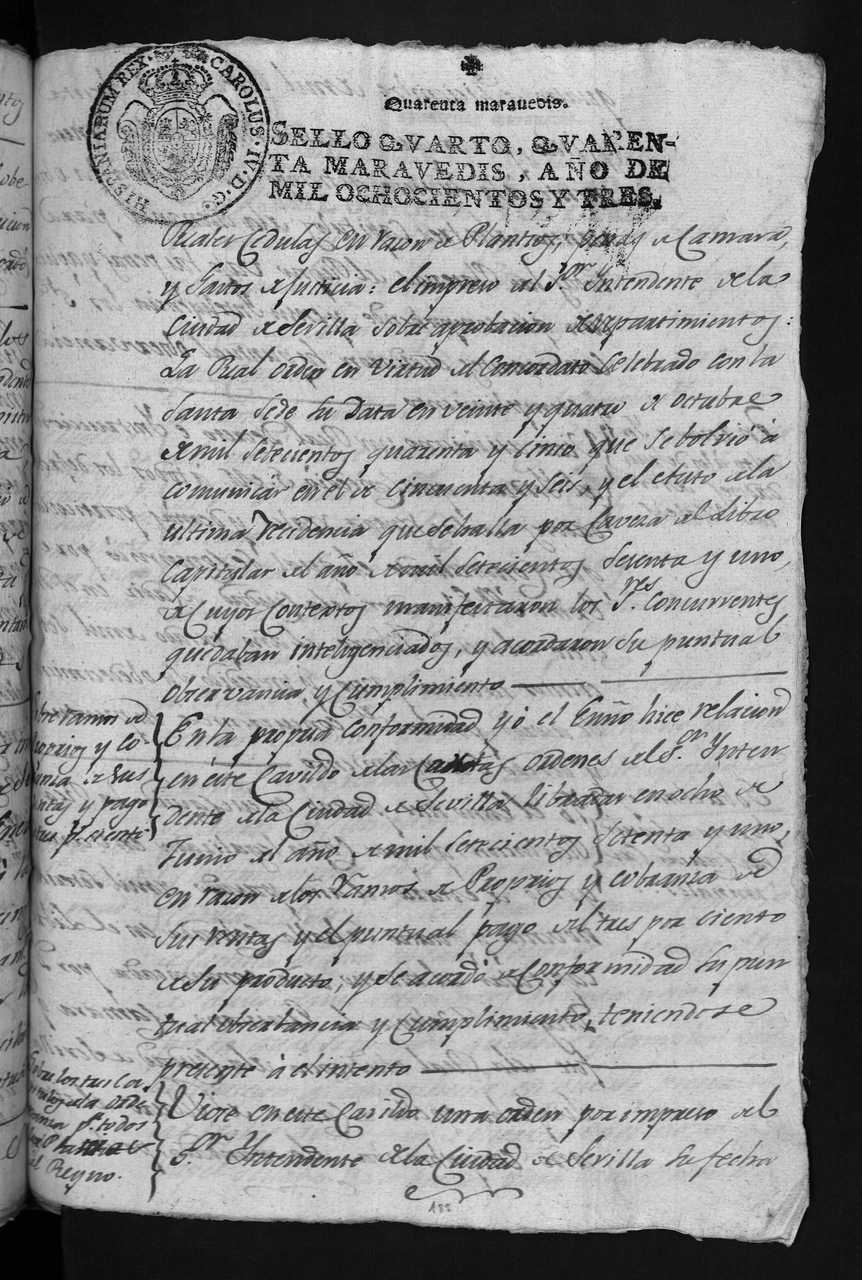 HISPANIARUM REX. CAROLUS. IV. D. G.
Quarenta marauedis.
SELLO QVARTO, QVAREN-
TA MARAVEDIS, AÑO DE
MIL OCHOCIENTOS Y TRES.
Reales Cedulas en razon de Plantios, penas de Camara,
y Gastos de Justicia: el impreso del Sor. Intendente de la
Ciudad de Sevilla sobre aprobacion de repartimientos:
La Real orden en virtud del Concordato Selebrado con la
Santa Sede su Data en veinte y quatro de octubre
de mil setecientos quarenta y sinco que se bolvió à
comunicar en el de cincuenta y seis, y el etuto de la
ultima recidencia que se halla por Cavera del Libro
Capitular del año de mil setecientos setenta y uno,
de cuyos Contextos manifestaron los Sres. Concurrentes
quedaban inteligenciados, y acordaron su puntual
observancia y Cumplimiento
En la propia Conformidad yo el Essno hice relacion
en este Cavildo de las Cartas ordenes del Sor. Ynten
dente de la Ciudad de Sevilla libradas en ocho de
Junio del año de mil setecientos setenta y uno,
en razon de los Ramos de Proprios y cobranza de
sus rentas y el puntual pago del tres por ciento
de su producto, y se acordó de Conformidad su pun
tual observancia y Cumplimiento, teniendose
presente à el intento
Viose en este Cavildo una orden por impreso del
Sor. Yntendente de la Ciudad de Sevilla su fecha
ramos de
proprios y co-
branza de sus
rentas y pago
tres p. ciento
Sobre los tres
de la orde
p. todos
el Reyno.
182